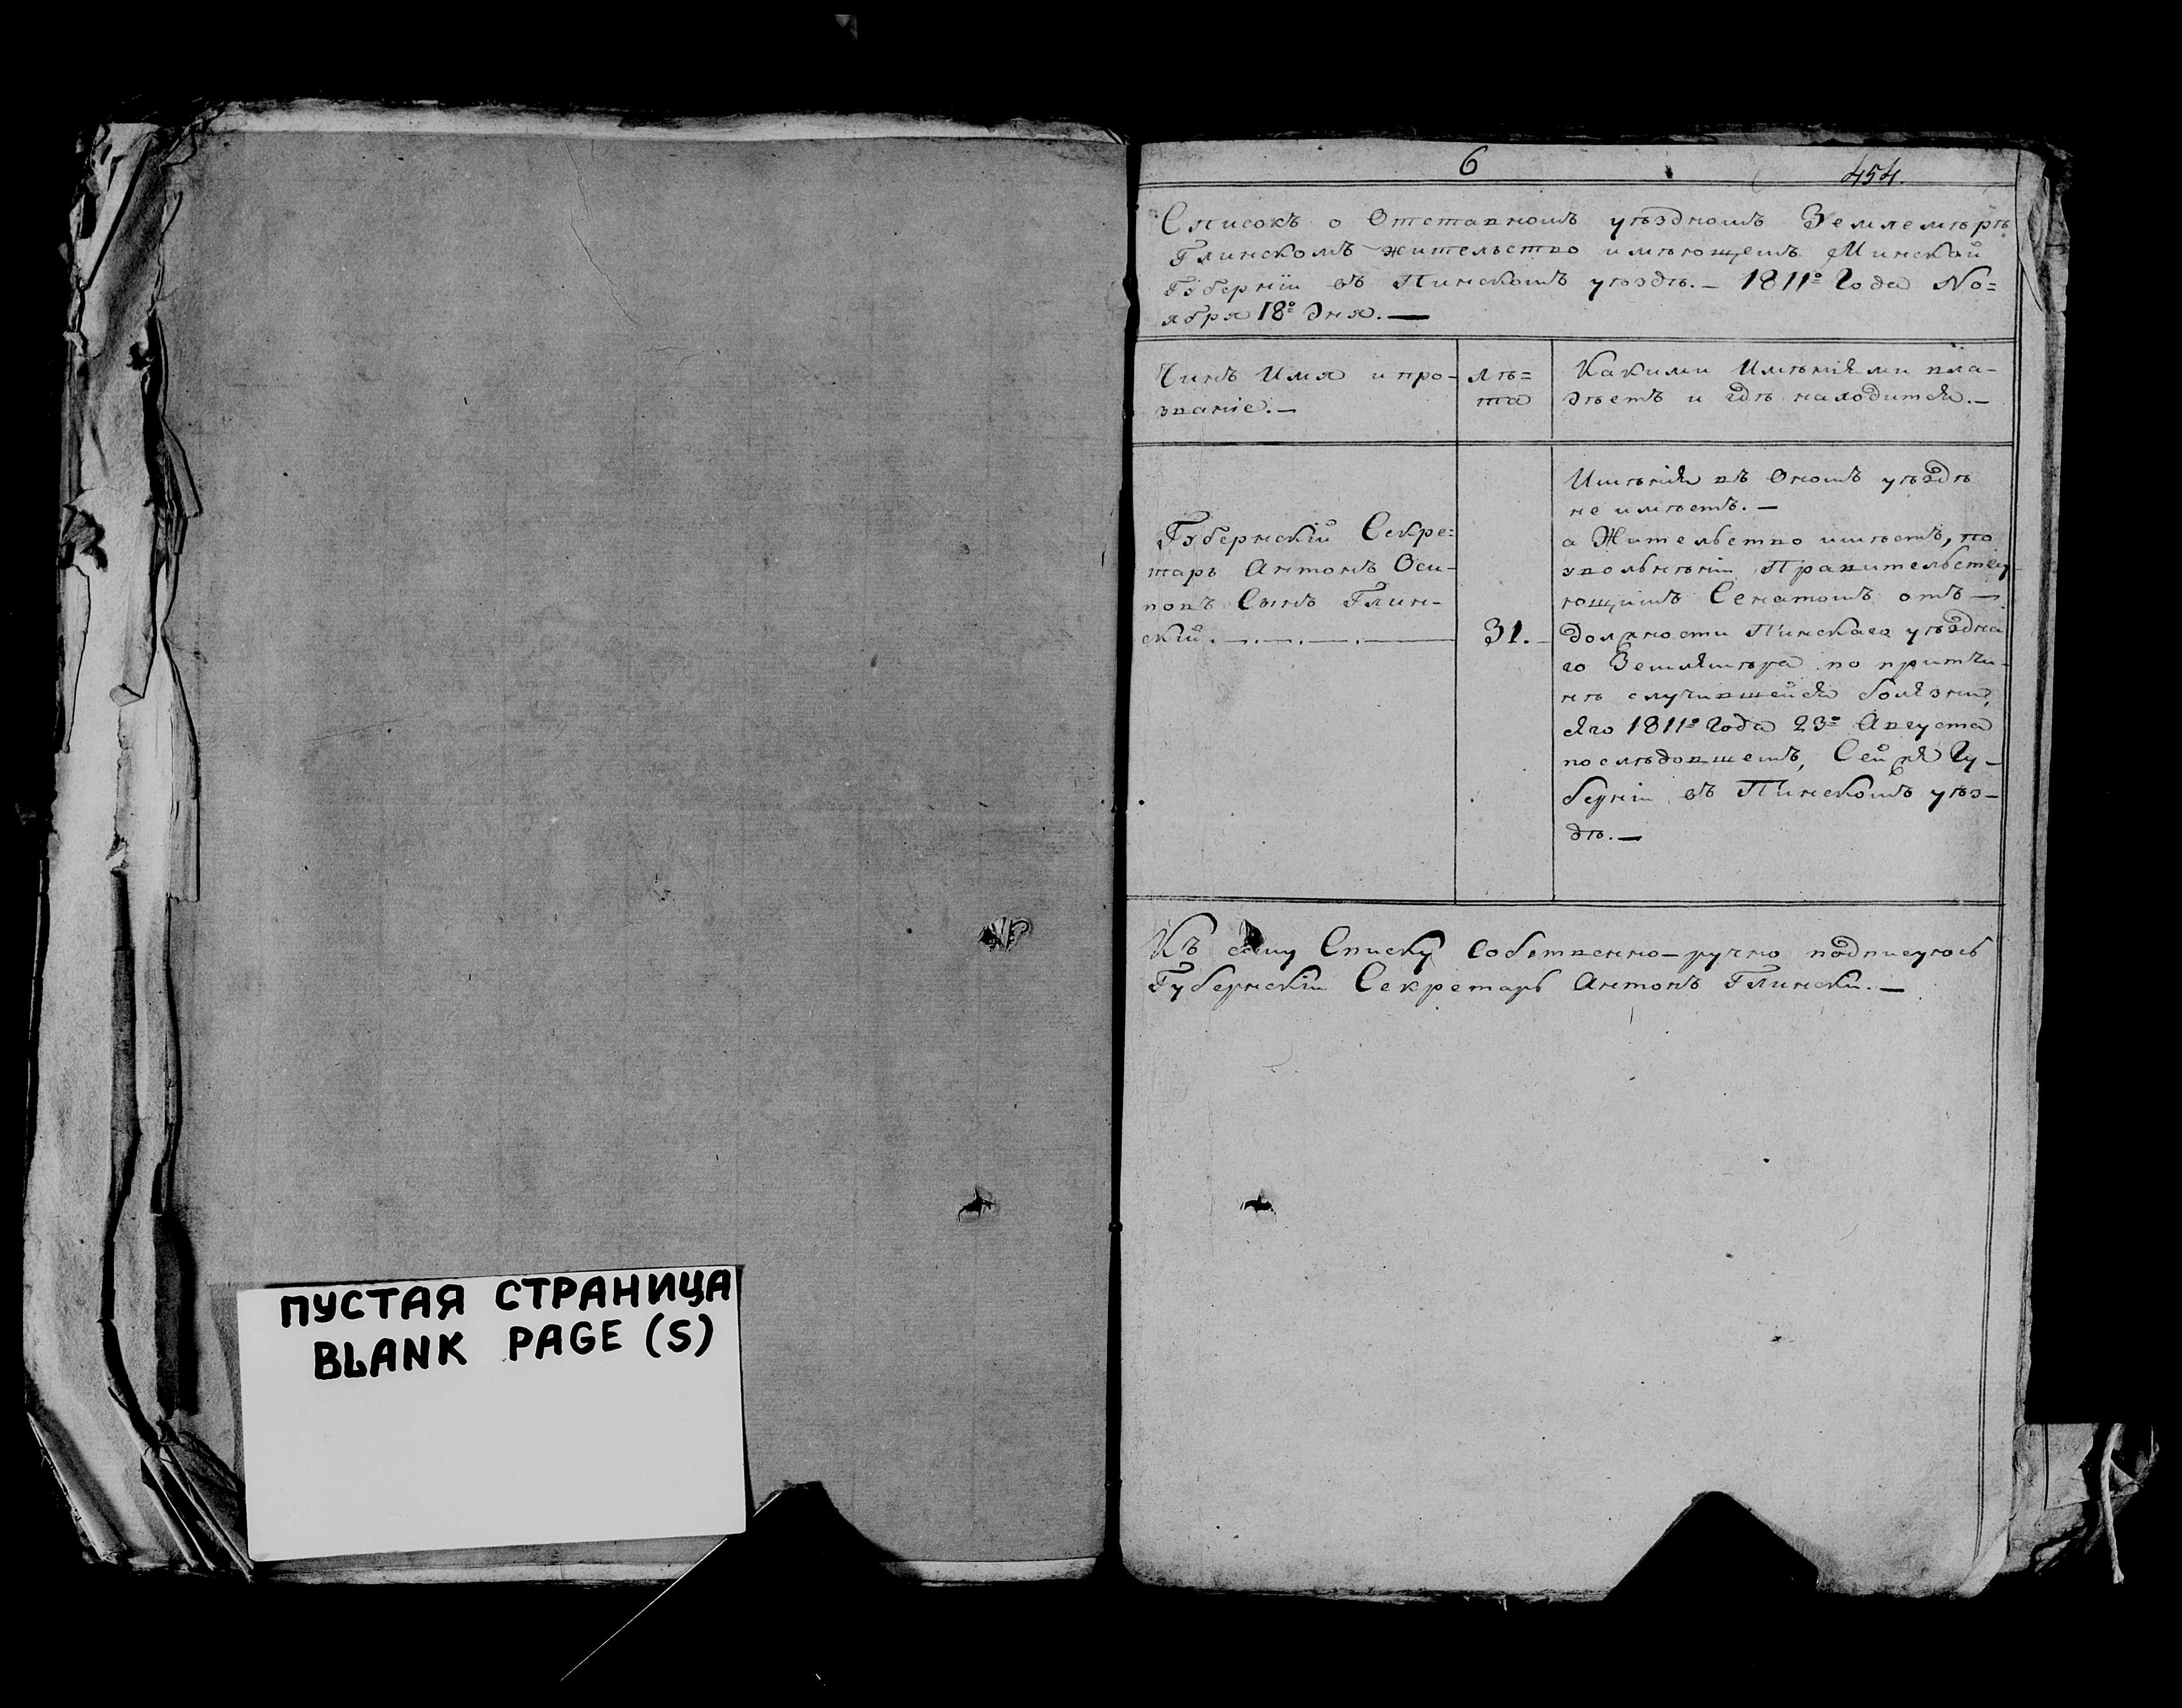 6
454.
Списокъ о Отставномъ уѣздномъ Землемѣрѣ
Глинскомъ жительство имѣющемъ Минской
Губерніи въ Пинскомъ уѣздѣ. — 1811º Года Но=
ября 18º дня. —
Чинъ Имя и про-
званіе. —
лѣ=
та
Какими Имѣніями вла-
дѣетъ и гдѣ находится. —
Губернскій Секре=
тарь Антонъ Оси-
повъ Сынъ Глин-
скій.
31.
Имѣнія въ Ономъ уѣздѣ
не имѣетъ. —
а Жительство имѣетъ, по
увольнѣніи Правительству
ющимъ Сенатомъ отъ —
должности Пинскаго уѣздна
го Землямѣра по притчи-
нѣ случившейся болѣзни,
сяго 1811º Года 23º Августа
послѣдовшемъ, Сей же Гу-
берніи въ Пинскомъ уѣз-
дѣ. —
Къ сему Списку Собственно-ручно подписуюсь
Губернскіи Секретарь Антонъ Глински. —
ПУСТАЯ СТРАНИЦА
BLANK PAGE (S)